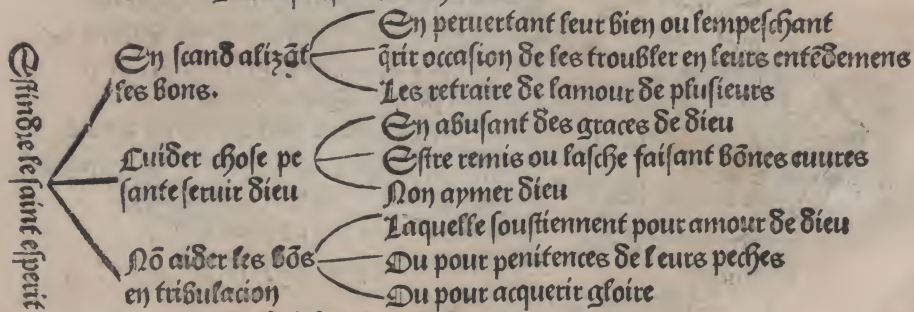 Estindre le saint esperit
En scandalizāt
les bons.
En peruertant leur bien ou lempeschant
q̄rir occasion de les troubler en leurs entēdemens
Les retraire de lamour de plusieurs
Cuider chose pe
sante seruir dieu
En abusant des graces de dieu
Estre remis ou lasche faisant bōnes euures
Non aymer dieu
Nō aider les bōs
en tribulacion
Laquelle soustiennent pour amour de dieu
Ou pour penitences de leurs peches
Ou pour acquerir gloire